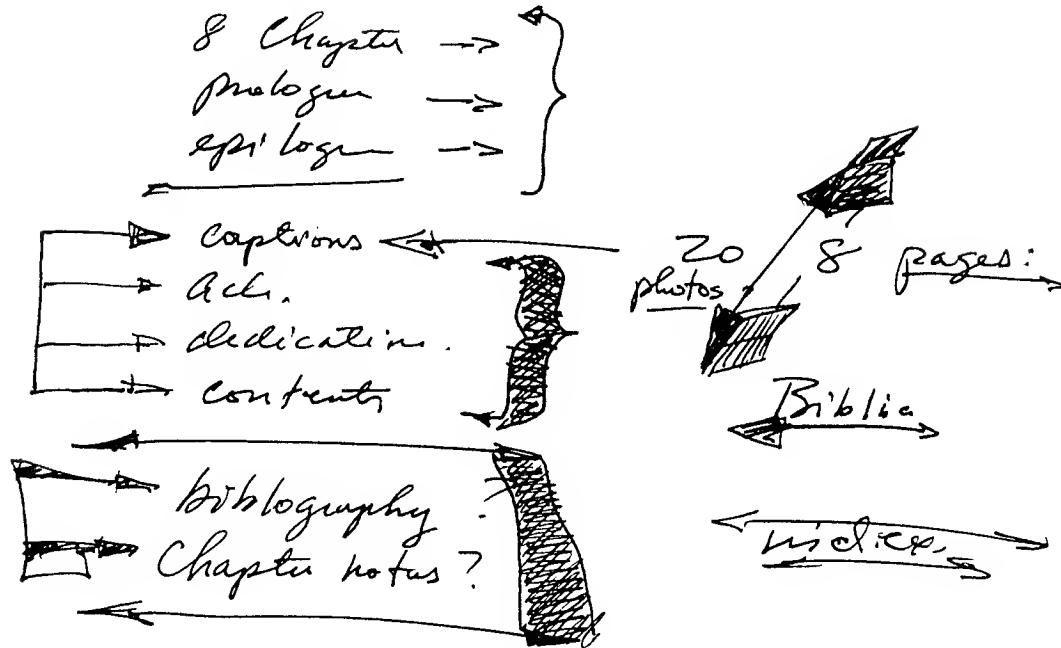 8 Chapter
prologue
epilogue
captions
Ack.
dedication.
contents
biblography ?
Chapter notes ?
20 photos
8 pages:
Biblia
indices.